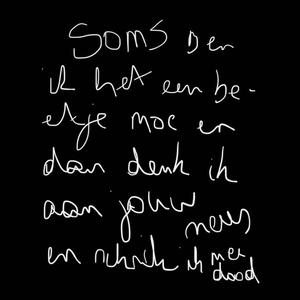 Soms ben
ik het een be-
etje moe en
dan denk ik
aan jouw neus
en schrik ik me
dood